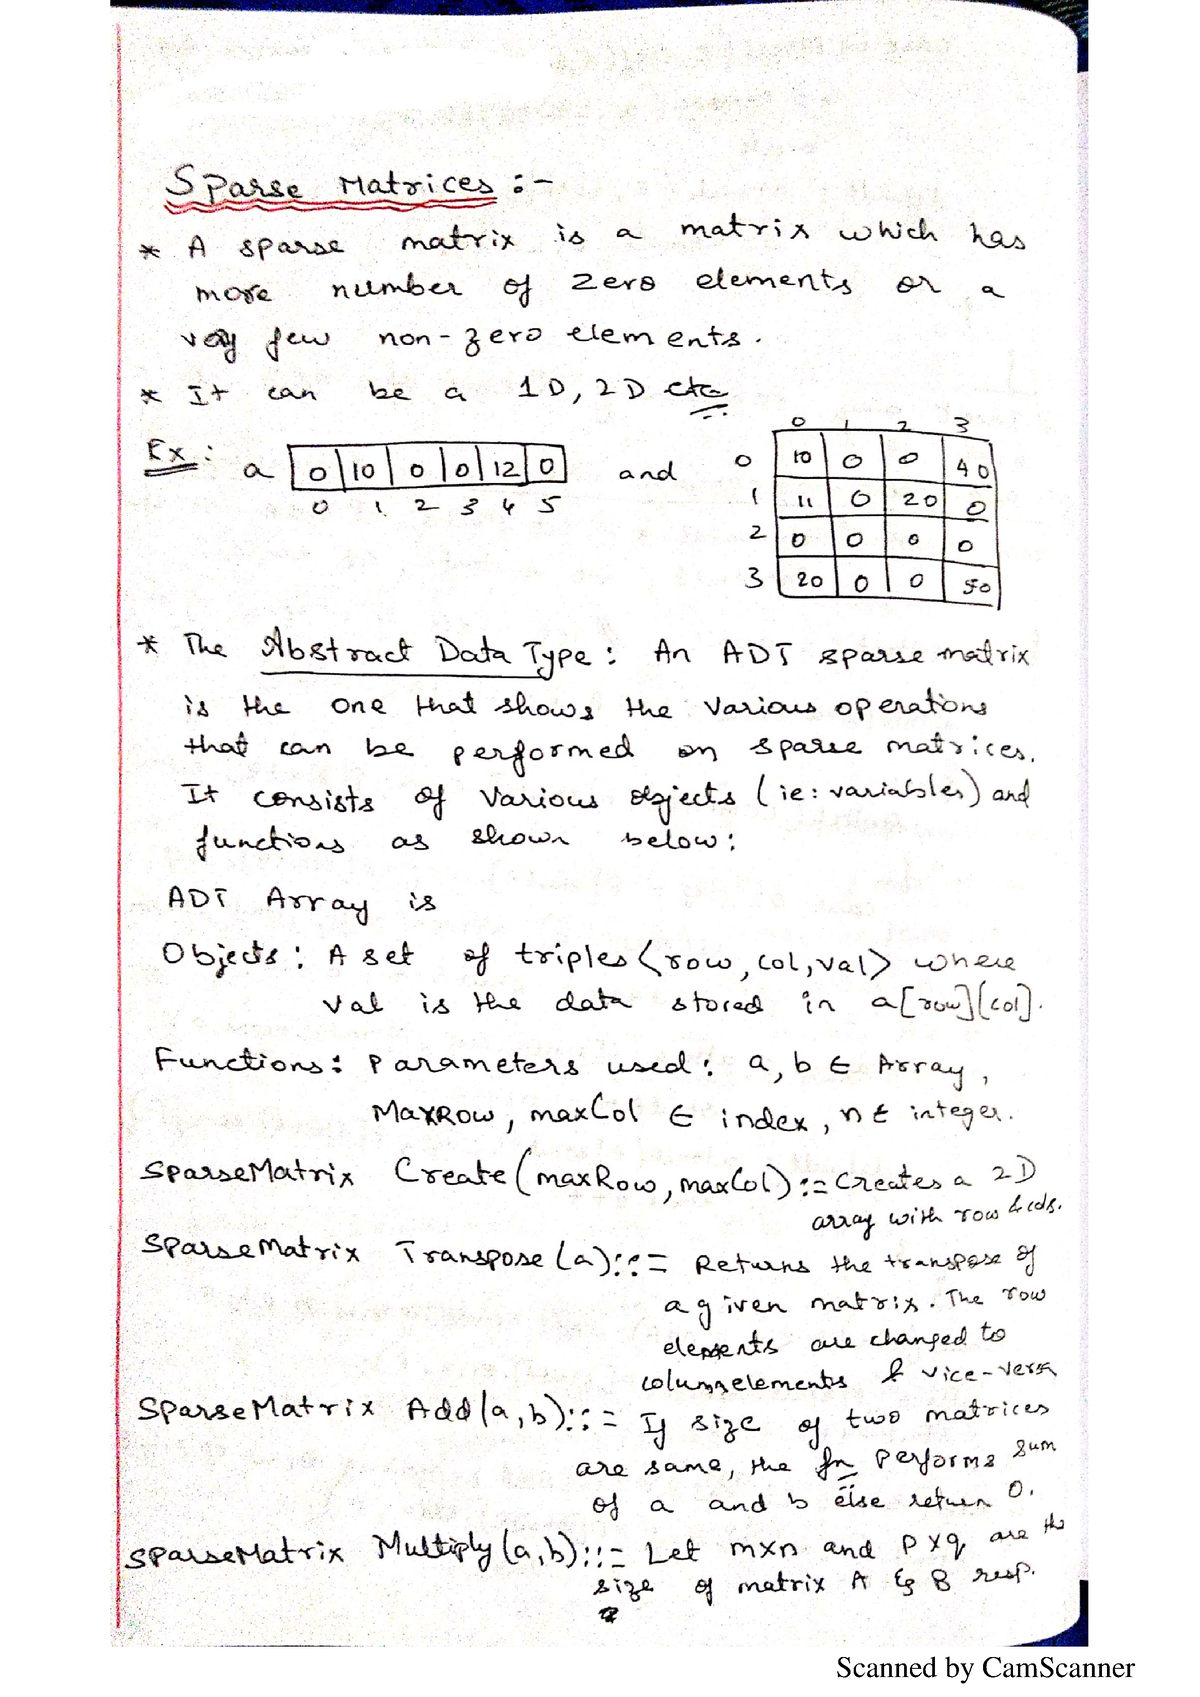 Sparse Matrices :-
* A sparse matrix is a matrix which has
more number of zero elements or a
very few non-zero elements.
* It can be a 1D, 2D etc
Ex : a 0 10 0 0 12 0 and
0 1 2 3 4 5
0 1 2 3
0 10 0 0 40
1 11 0 20 0
2 0 0 0 0
3 20 0 0 50
* The Abstract Data Type : An ADT sparse matrix
is the one that shows the various operations
that can be performed on sparse matrices.
It consists of various objects (ie: variables) and
functions as shown below:
ADT Array is
Objects : A set of triples <row, col, val> where
val is the data stored in a[row][col].
Functions : Parameters used : a, b ∈ Array,
MaxRow, maxCol ∈ index, n ∈ integer.
SparseMatrix Create (maxRow, maxCol) ::= Creates a 2D
array with row & cols.
SparseMatrix Transpose (a) ::= Returns the transpose of
a given matrix. The row
elements are changed to
column elements & vice-versa
SparseMatrix Add (a, b) ::= If size of two matrices
are same, the fn performs sum
of a and b else return 0.
SparseMatrix Multiply (a, b) ::= Let mxn and pxq are the
size of matrix A & B resp.
Scanned by CamScanner